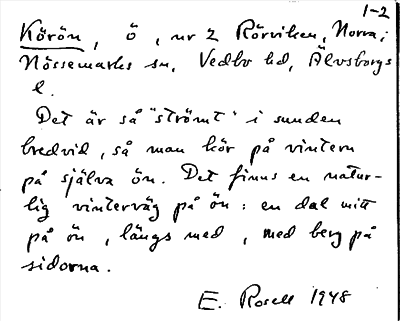 1-2
Körön, ö, nr 2 Rörviken, Norra;
Nössemarks sn, Vedbo hd, Älvsborgs
l.
Det är så "strömt" i sunden
bredvid, så man kör på vintern
på själva ön. Det finns en natur-
lig vinterväg på ön: en dal mitt
på ön, längs med, med berg på
sidorna.
E. Rosell 1948